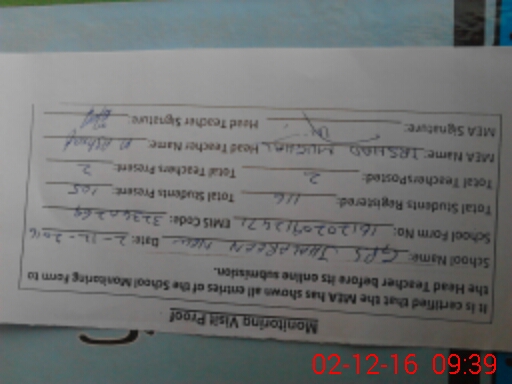 Monitoring Visit Proof
It is certified that the MEA has shown all entries of the School Monitoring Form to
the Head Teacher before its online submission.
School Name: GPS Date: 2-12-2016
School Form No: EMIS Code:
Total Students Registered: 116 Total Students Present: 105
Total TeachersPosted: 2 Total Teachers Present: 2
MEA Name: IRSHAD Head Teacher Name:
MEA Signature: Head Teacher Signature:
02-12-16 09:39